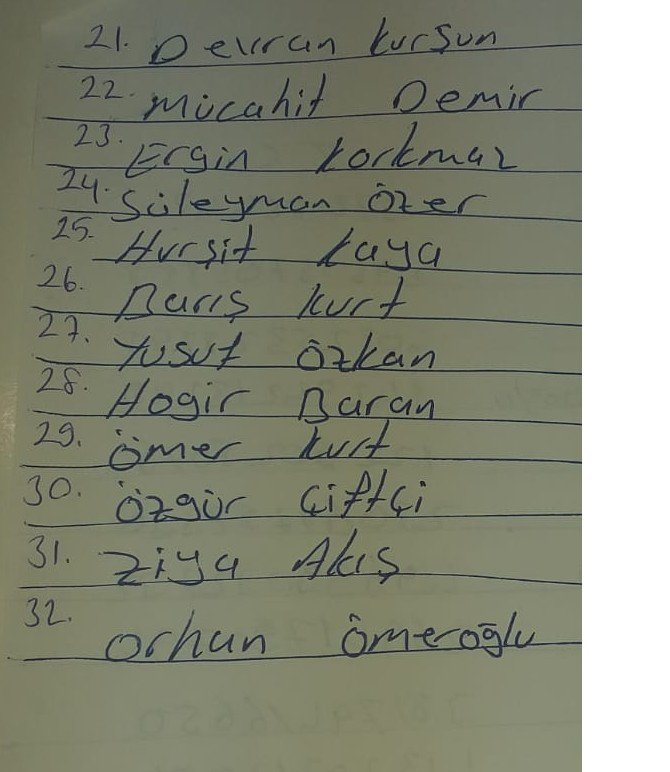 21. Devran Kurşun
22. Mücahit Demir
23. Ergin Korkmaz
24. Süleyman Özer
25. Hurşit Kaya
26. Barış Kurt
27. Yusuf Özkan
28. Hogir Baran
29. Ömer Kurt
30. Özgür Çiftçi
31. Ziya Akış
32. Orhan Ömeroğlu